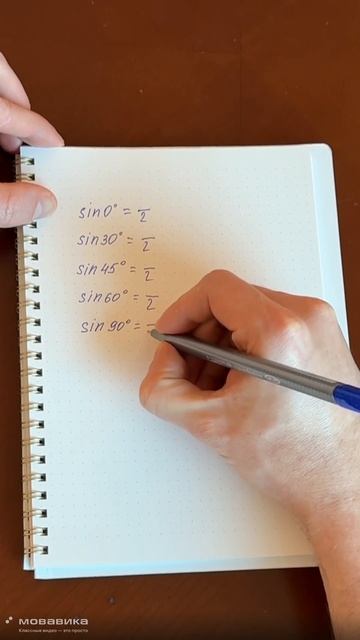 sin0° = —/2
sin30° = —/2
sin45° = —/2
sin60° = —/2
sin90° = —
мовавика
Классные видео — это просто